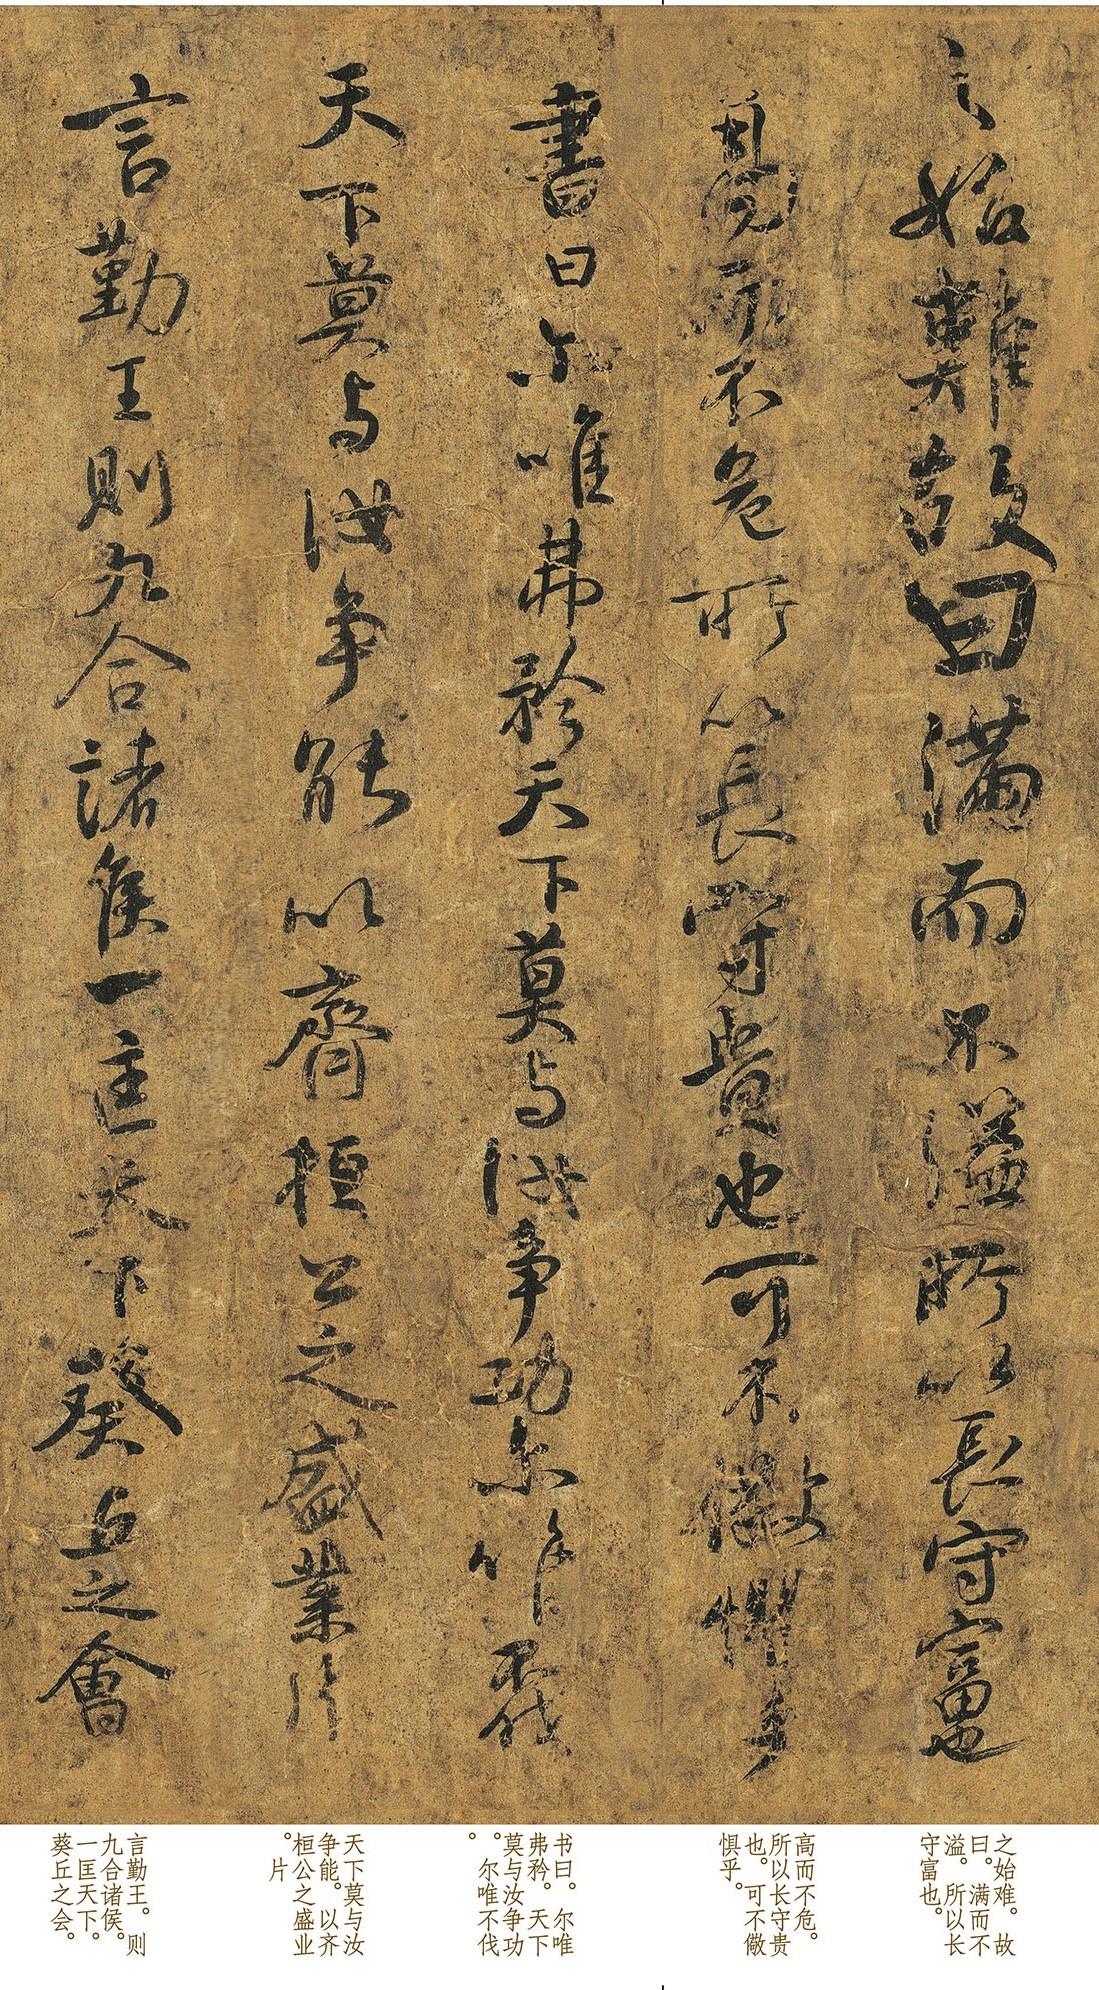 之始難故曰滿而不溢所以長守富也
高而不危所以長守貴也可不儆懼乎
書曰尔唯弗矜天下莫与汝争功尔唯不伐
天下莫与汝争能以齊桓公之盛業片
言勤王則九合諸侯一匡天下葵丘之會
之始难。故
曰。满而不
溢。所以长
守富也。
高而不危。
所以长守贵
也。可不儆
惧乎。
书曰。尔唯
弗矜。天下
莫与汝争功
。尔唯不伐
。
天下莫与汝
争能。以齐
桓公之盛业
。片
言勤王。则
九合诸侯。
一匡天下。
葵丘之会。